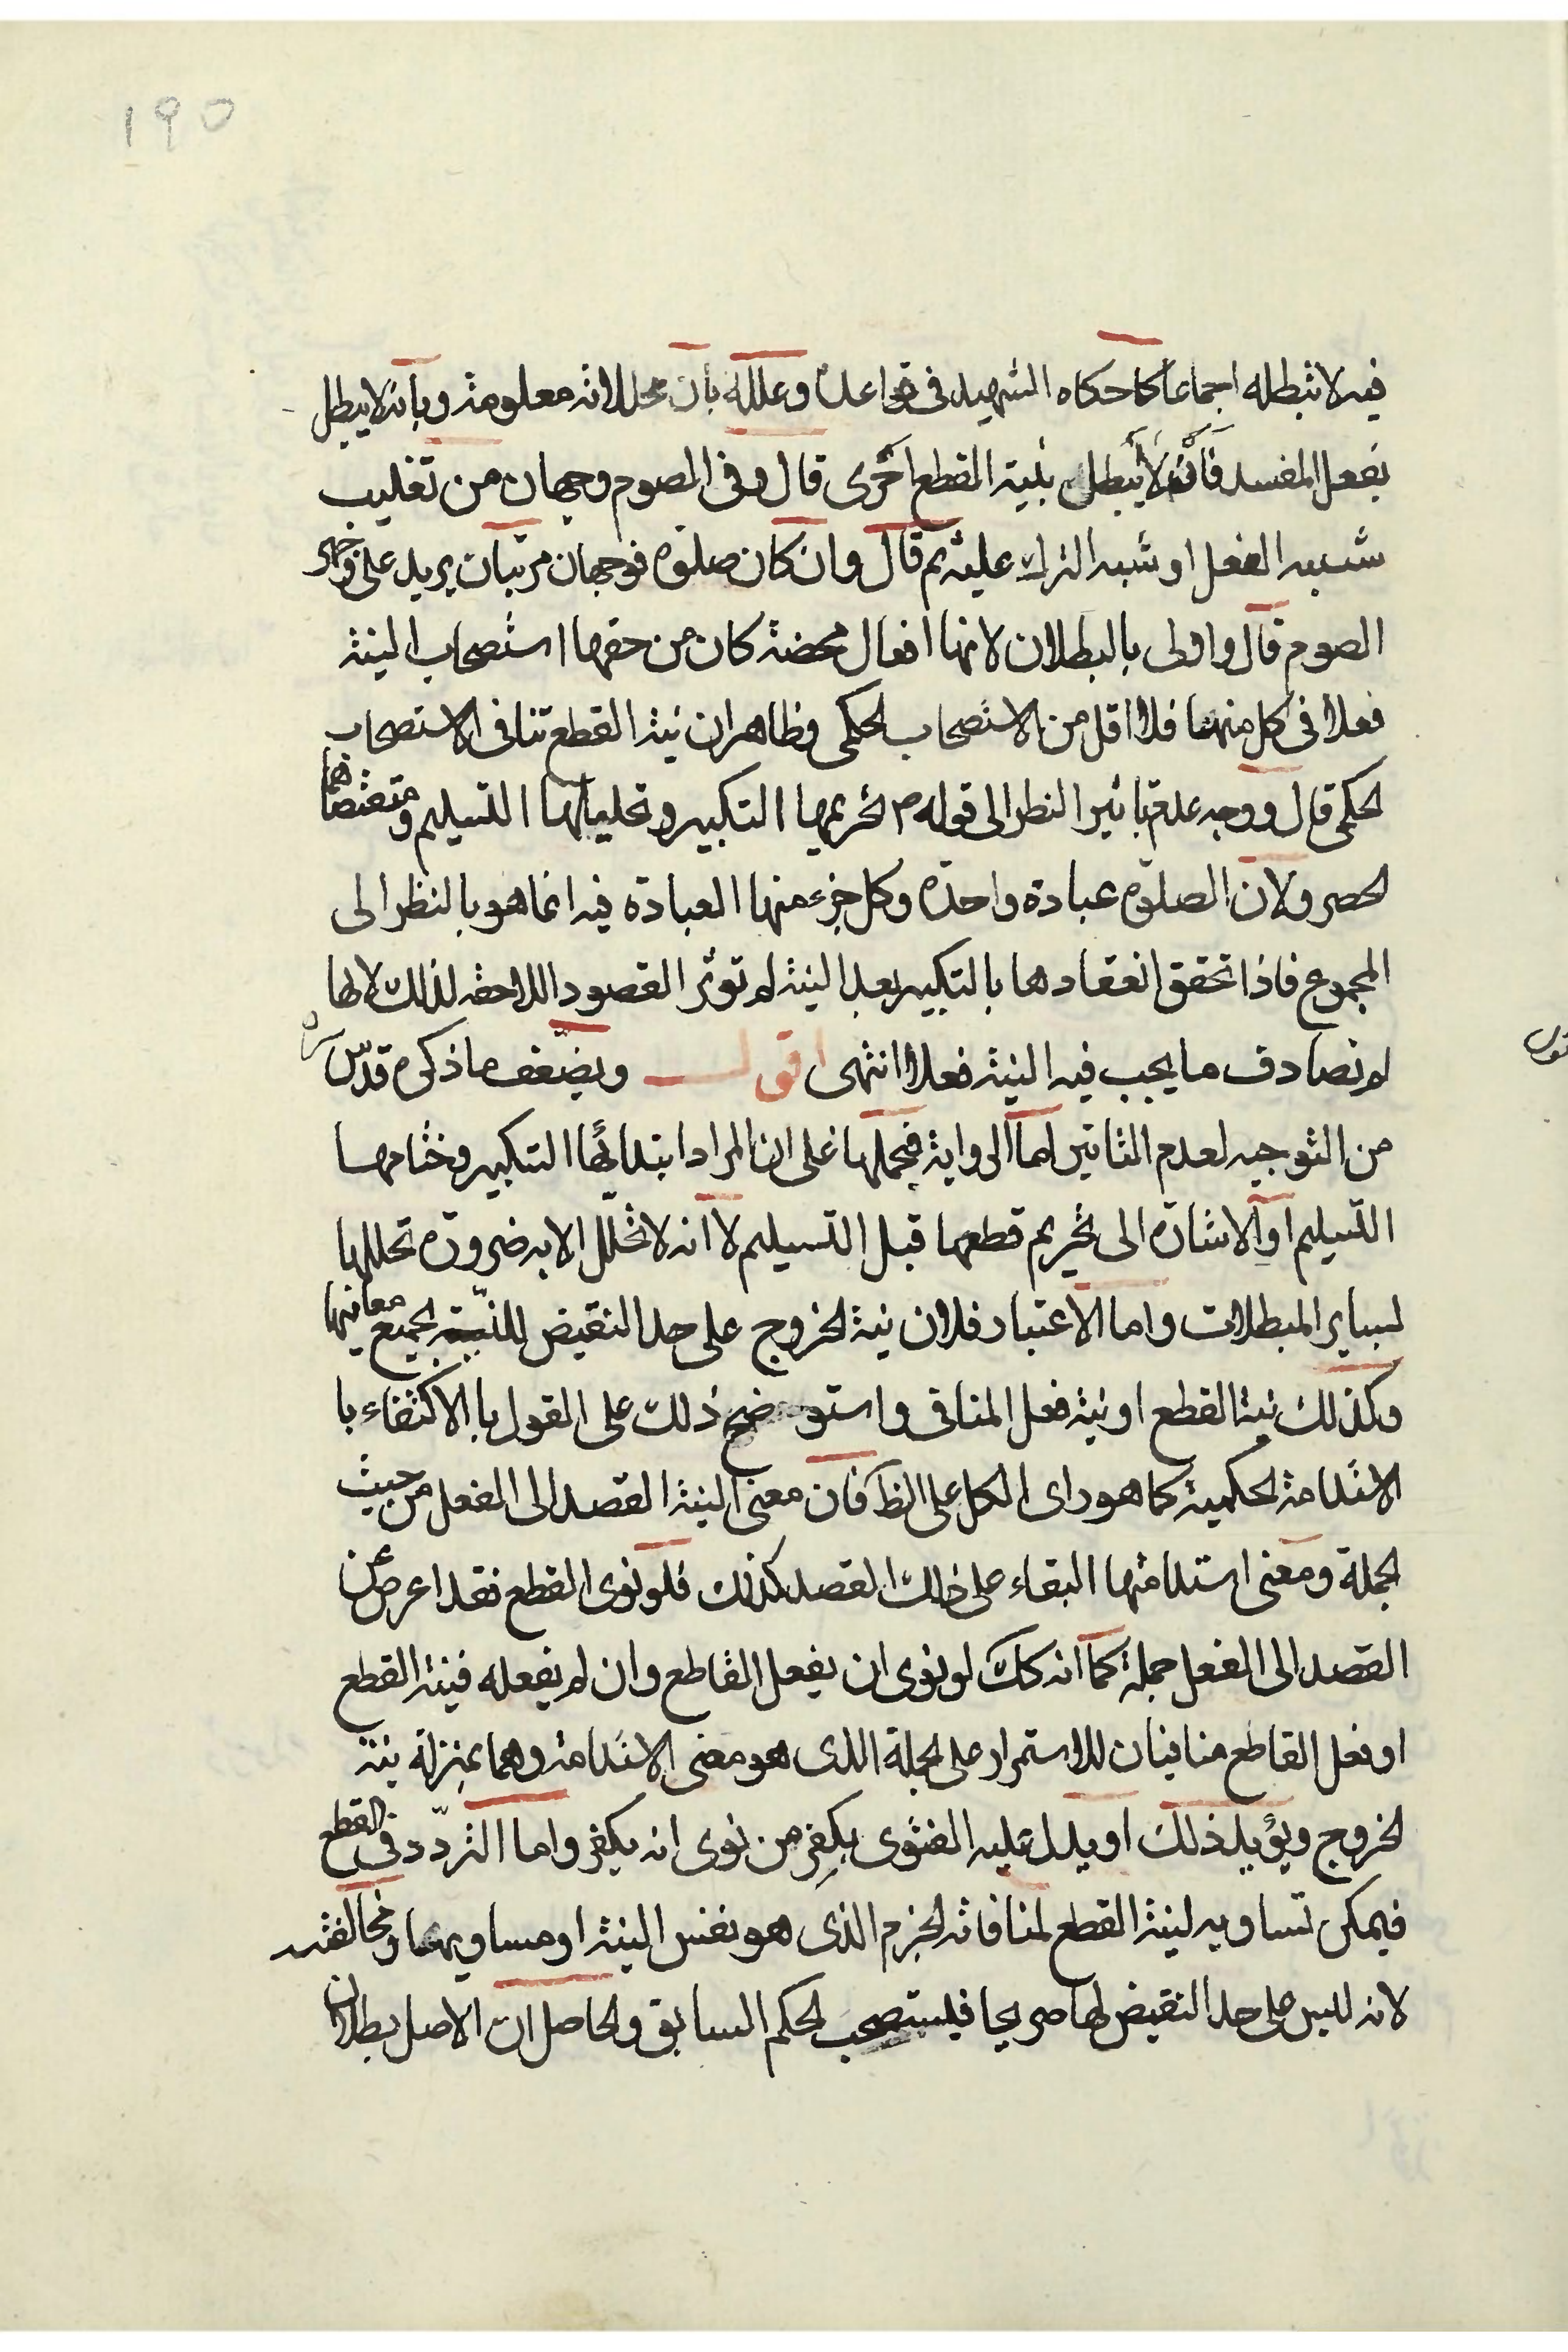 ١٩٥
فيه لا تبطله اجماعا كما حكاه الشهيد فى قواعده وعلله بان محللاته معلومة وبانه لا يبطل
بفعل المفسد فانه لا يبطل بنية القطع احرى قال وفى الصوم وجهان من تغليب
شبه الفعل او شبه الترك عليه ثم قال وان كان صلوة فوجهان مرتبان يريد على وجهى
الصوم قال واولى بالبطلان لانها افعال محضة كان من حقها استصحاب النية
فعلا فى كل منها فلا اقل من الاستصحاب الحكمى وظاهر ان نية القطع تنافى الاستصحاب
الحكمى قال ووجه عدم تاثير النظر الى قوله ص تحريمها التكبير وتحليلها التسليم ومقتضاهما
الحصر ولان الصلوة عبادة واحدة وكل جزء منها العبادة فيه انما هو بالنظر الى
المجموع فاذا تحقق انعقادها بالتكبير بعد النية لم تؤثر القصود اللاحقة لذلك لانها
لم تصادف ما يجب فيه النية فعلا انتهى اقول ويضعف ما ذكره قدس سره
من التوجيه لعدم التاثير اما الرواية فبحملها على ان المراد ابتدائها التكبير وختامها
التسليم او الاشارة الى تحريم قطعها قبل التسليم لا انه لا تحلل الا به ضرورة تحللها
بساير المبطلات واما الاعتبار فلان نية الخروج على حد النقيض للنية بجميع معانيها
وكذلك نية القطع او نية فعل المنافى واستوضح ذلك على القول بالاكتفاء با
الاستدامة الحكمية كما هو راى الكل على الظ فان معنى النية القصد الى الفعل من حيث
الجملة ومعنى استدامتها البقاء على ذلك القصد كذلك فلو نوى القطع فقد اعرض عن
القصد الى الفعل جملة كما انه كك لو نوى ان يفعل القاطع وان لم يفعله فنية القطع
او فعل القاطع منافيان للاستمرار على الجملة الذى هو معنى الاستدامة وهما بمنزلة نية
الخروج ويؤيد ذلك او يدل عليه الفتوى بكفر من نوى انه يكفر واما التردد فى القطع
فيمكن تساويه لنية القطع لمنافاته الجزم الذى هو نفس النية او مساويها ومخالفته
لانه ليس على حد النقيض لها صريحا فليستصحب الحكم السابق والحاصل ان الاصل بطلان